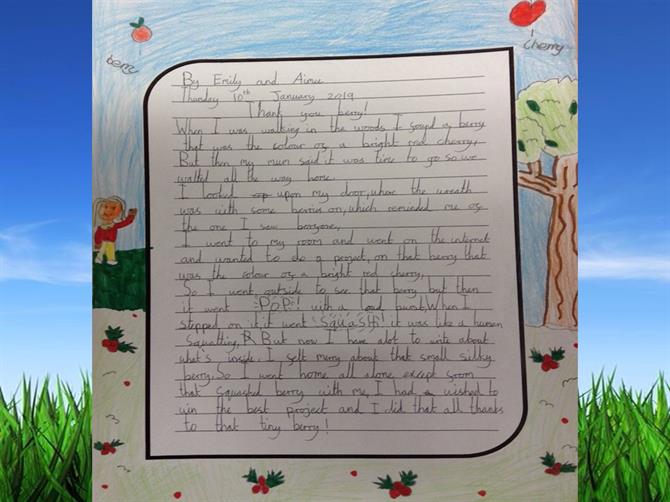 berry
cherry
By Emily and Aimee
Thursday 10th January 2019
Thank you berry!
When I was walking in the woods I found a berry
that was the colour of a bright red cherry,
But then my mum said it was time to go so we
walked all the way home.
I looked upon my door, where the wreath
was with some berries on, which reminded me of
the one I saw
I went to my room and went on the internet
and wanted to do a project, on that berry that
was the colour of a bright red cherry,
So I went outside to see that berry but then
it went POP! with a loud burst, When I
stepped on it it went squash! it was like a human
squatting, But now I have alot to write about
what's inside. I felt merry about that small silky
berry. So I went home all alone except from
that squashed berry with me, I had wished to
win the best project and I did that all thanks
to that tiny berry!